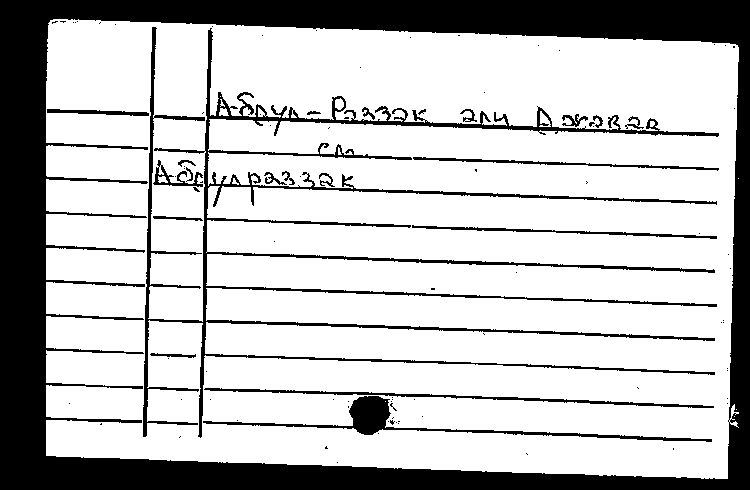 Абдул-Раззак али Джавад
см.
Абдулраззак